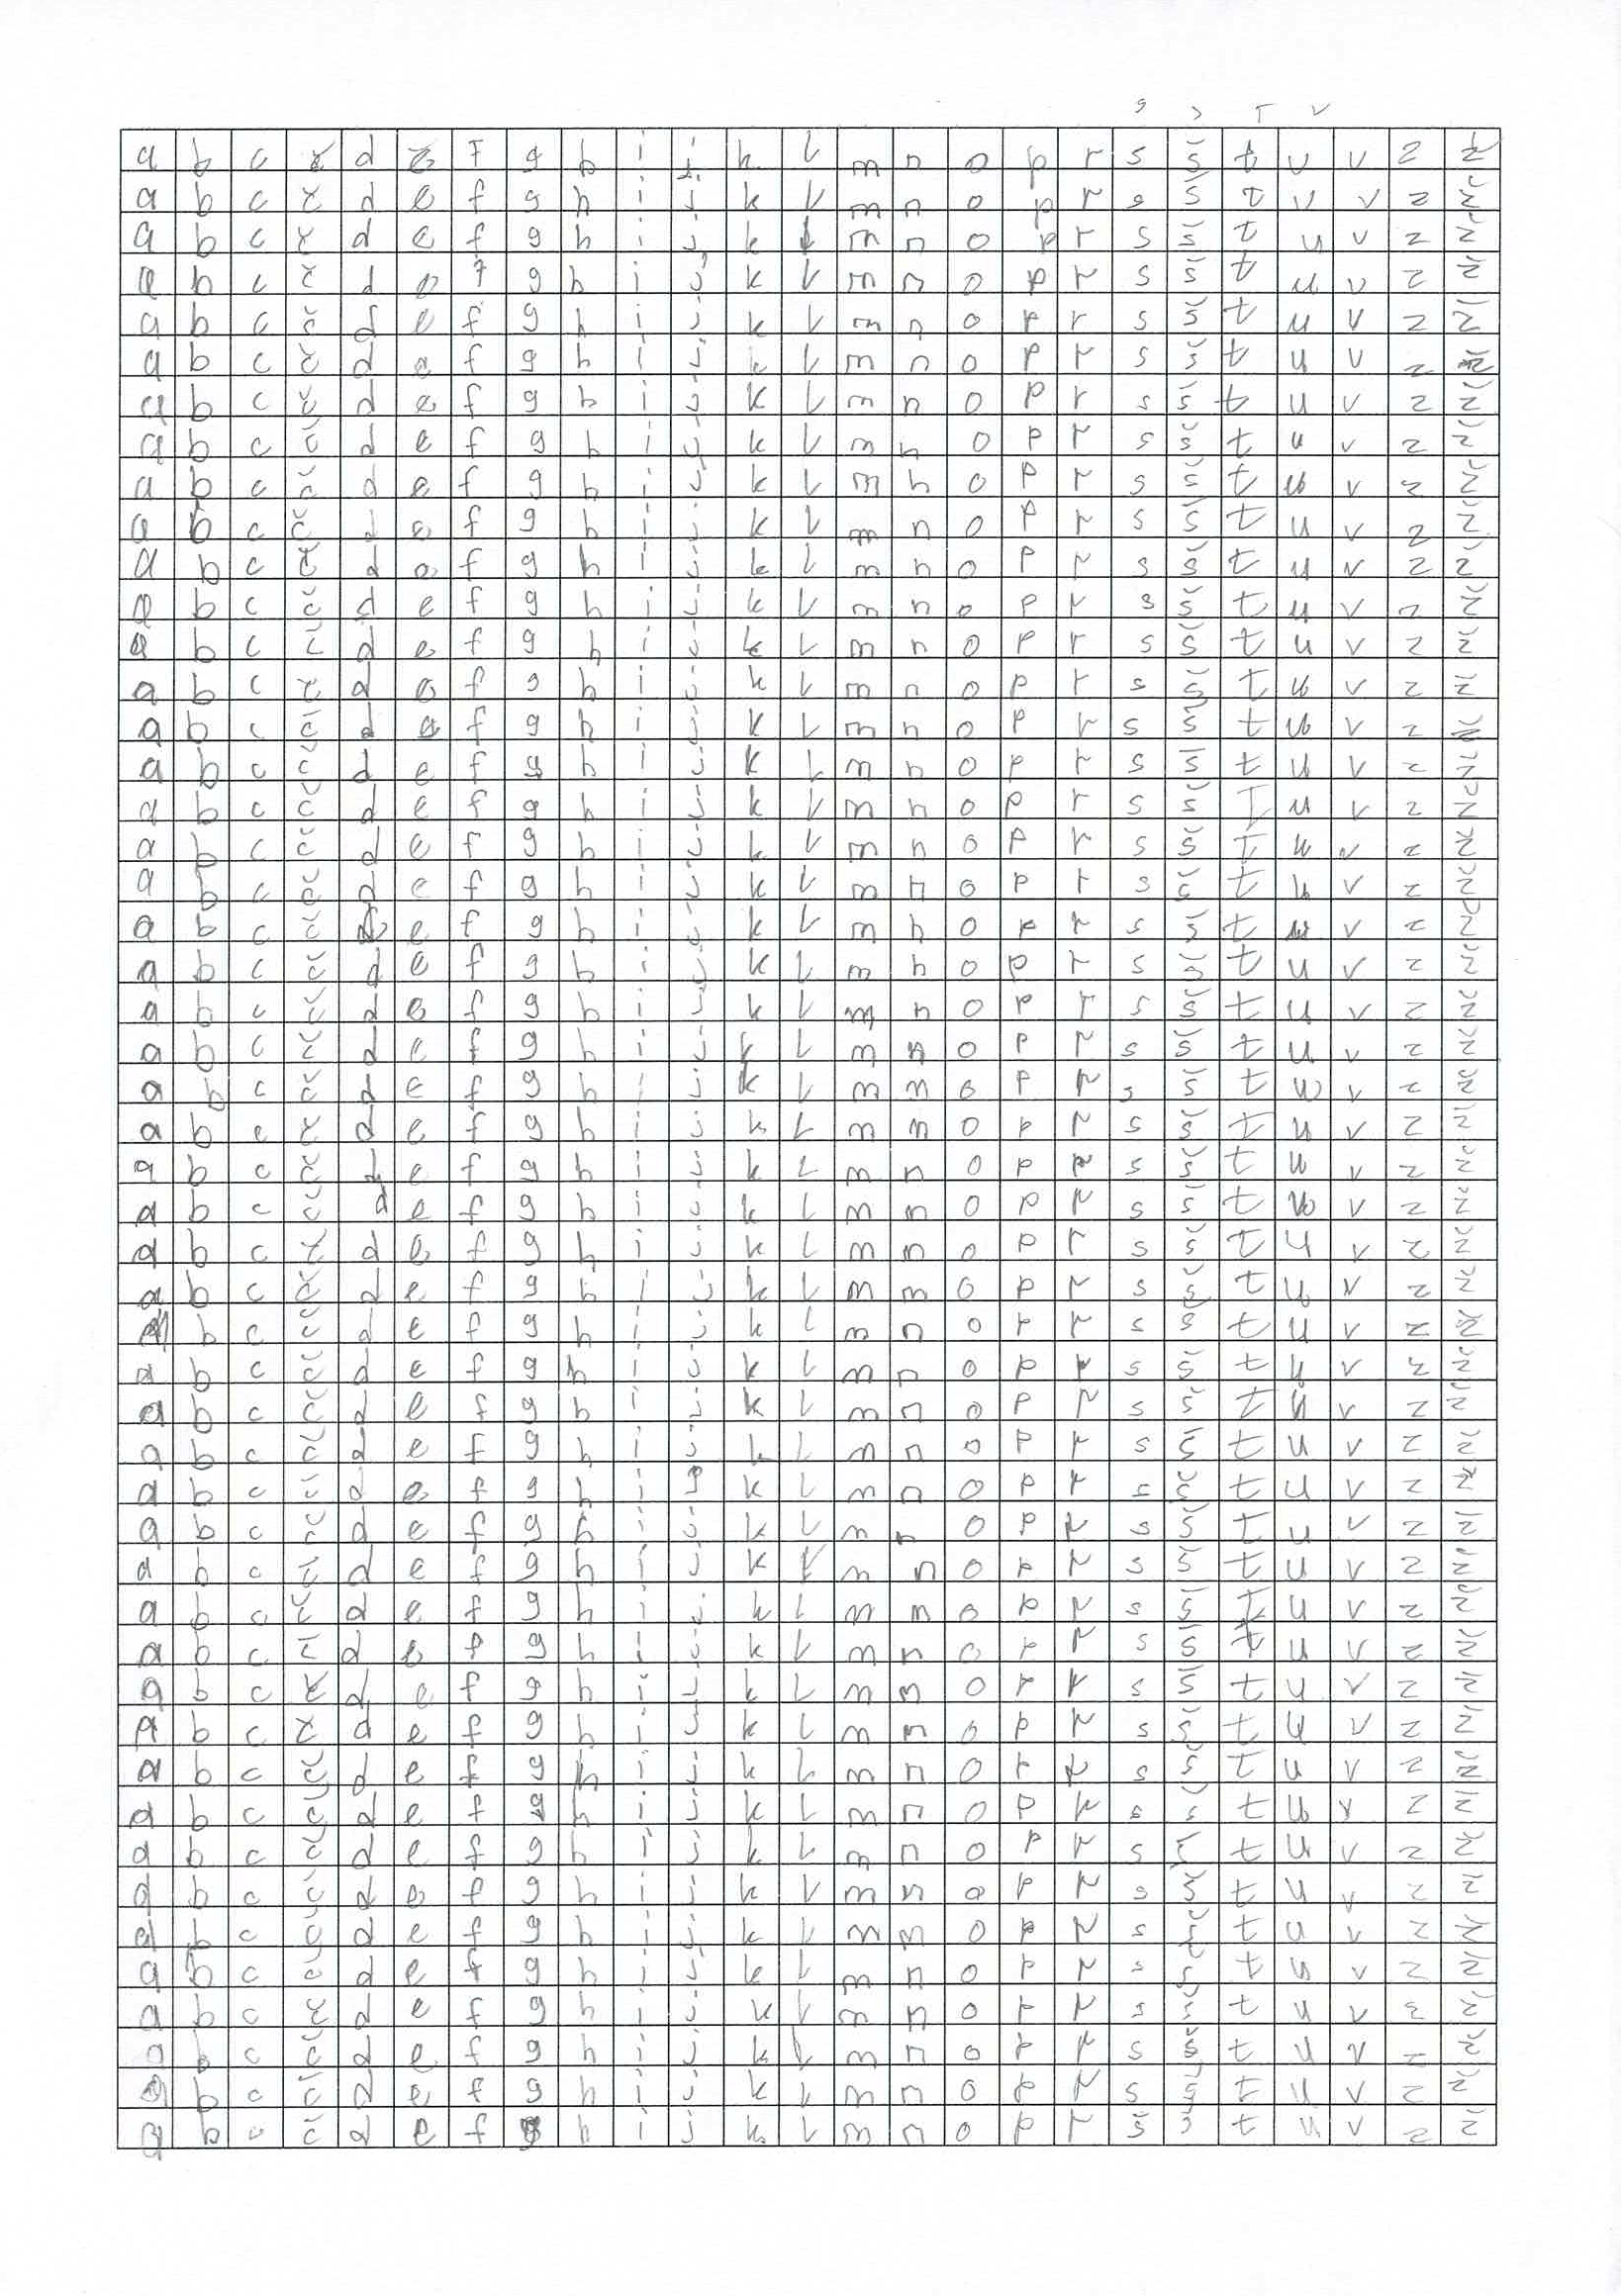 s T v
a b c č d e f g h i j k l m n o p r s š t u v z ž
a b c č d e f g h i j k l m n o p r s š t u v z ž
a b c č d e f g h i j k l m n o p r s š t u v z ž
a b c č d e f g h i j k l m n o p r s š t u v z ž
a b c č d e f g h i j k l m n o p r s š t u v z ž
a b c č d e f g h i j k l m n o p r s š t u v z ž
a b c č d e f g h i j k l m n o p r s š t u v z ž
a b c č d e f g h i j k l m n o p r s š t u v z ž
a b c č d e f g h i j k l m n o p r s š t u v z ž
a b c č d e f g h i j k l m n o p r s š t u v z ž
a b c č d e f g h i j k l m n o p r s š t u v z ž
a b c č d e f g h i j k l m n o p r s š t u v z ž
a b c č d e f g h i j k l m n o p r s š t u v z ž
a b c č d e f g h i j k l m n o p r s š t u v z ž
a b c č d e f g h i j k l m n o p r s š t u v z ž
a b c č d e f g h i j k l m n o p r s š t u v z ž
a b c č d e f g h i j k l m n o p r s š t u v z ž
a b c č d e f g h i j k l m n o p r s š t u v z ž
a b c č d e f g h i j k l m n o p r s š t u v z ž
a b c č d e f g h i j k l m n o p r s š t u v z ž
a b c č d e f g h i j k l m n o p r s š t u v z ž
a b c č d e f g h i j k l m n o p r s š t u v z ž
a b c č d e f g h i j k l m n o p r s š t u v z ž
a b c č d e f g h i j k l m n o p r s š t u v z ž
a b c č d e f g h i j k l m n o p r s š t u v z ž
a b c č d e f g h i j k l m n o p r s š t u v z ž
a b c č d e f g h i j k l m n o p r s š t u v z ž
a b c č d e f g h i j k l m n o p r s š t u v z ž
a b c č d e f g h i j k l m n o p r s š t u v z ž
a b c č d e f g h i j k l m n o p r s š t u v z ž
a b c č d e f g h i j k l m n o p r s š t u v z ž
a b c č d e f g h i j k l m n o p r s š t u v z ž
a b c č d e f g h i j k l m n o p r s š t u v z ž
a b c č d e f g h i j k l m n o p r s š t u v z ž
a b c č d e f g h i j k l m n o p r s š t u v z ž
a b c č d e f g h i j k l m n o p r s š t u v z ž
a b c č d e f g h i j k l m n o p r s š t u v z ž
a b c č d e f g h i j k l m n o p r s š t u v z ž
a b c č d e f g h i j k l m n o p r s š t u v z ž
a b c č d e f g h i j k l m n o p r s š t u v z ž
a b c č d e f g h i j k l m n o p r s š t u v z ž
a b c č d e f g h i j k l m n o p r s š t u v z ž
a b c č d e f g h i j k l m n o p r s š t u v z ž
a b c č d e f g h i j k l m n o p r s š t u v z ž
a b c č d e f g h i j k l m n o p r s š t u v z ž
a b c č d e f g h i j k l m n o p r s š t u v z ž
a b c č d e f g h i j k l m n o p r s š t u v z ž
a b c č d e f g h i j k l m n o p r s š t u v z ž
a b c č d e f g h i j k l m n o p r s š t u v z ž
a b c č d e f g h i j k l m n o p r š š t u v z ž